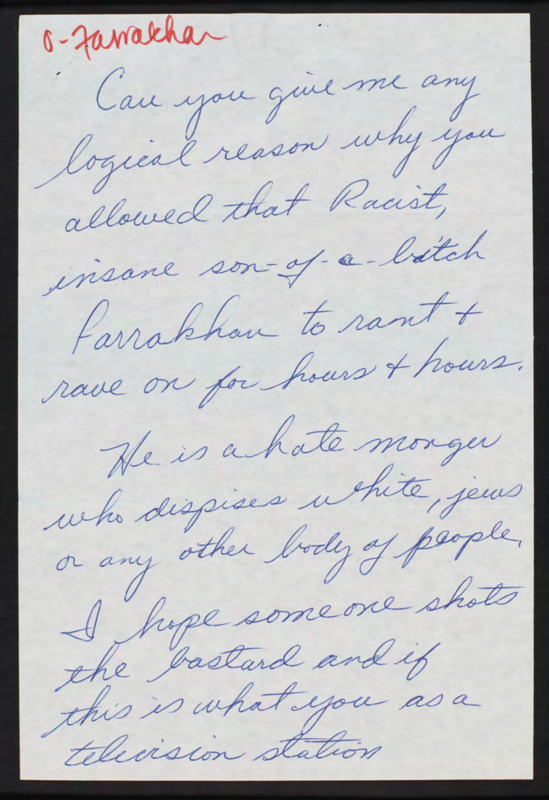 O-Farrakhan
Can you give me any
logical reason why you
allowed that Racist,
insane son-of-a-bitch
Farrakhan to rant +
rave on for hours + hours.
He is a hate monger
who dispises white, jews
or any other body of people.
I hope someone shots
the bastard and if
this is what you as a
television station